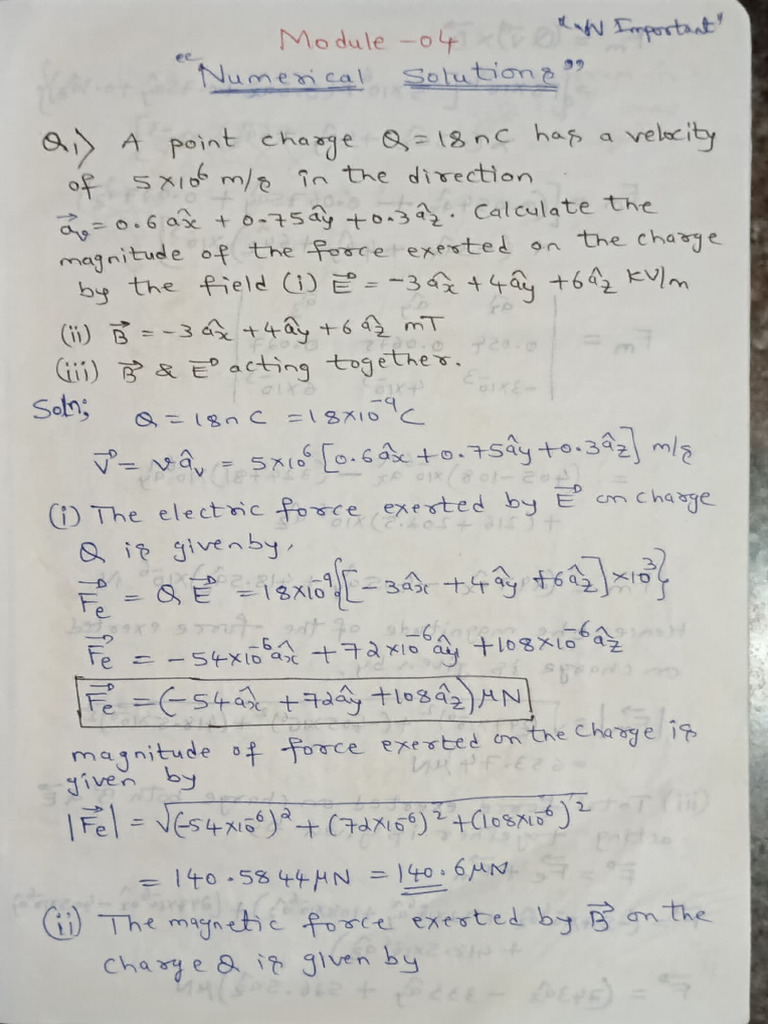 "VV Important"
Module-04
"Numerical Solutions"
Q1) A point charge Q=18nC has a velocity
of 5×10⁶ m/s in the direction
a⃗v=0.6 âx + 0.75 ây + 0.3 âz. Calculate the
magnitude of the force exerted on the charge
by the field (i) E⃗ = -3 âx + 4 ây + 6 âz KV/m
(ii) B⃗ = -3 âx + 4 ây + 6 âz mT
(iii) B⃗ & E⃗ acting together.
Soln; Q = 18n C = 18×10⁻⁹ C
V⃗ = v âv = 5×10⁶ [0.6 âx + 0.75 ây + 0.3 âz] m/s
(i) The electric force exerted by E⃗ on charge
Q is given by,
F⃗e = Q E⃗ = 18×10⁻⁹{[-3 âx + 4 ây + 6 âz]×10³}
F⃗e = -54×10⁻⁶ âx + 72×10⁻⁶ ây + 108×10⁻⁶ âz
F⃗e = (-54 âx + 72 ây + 108 âz) μN
magnitude of force exerted on the charge is
given by
|F⃗e| = √(-54×10⁻⁶)² + (72×10⁻⁶)² + (108×10⁻⁶)²
= 140.5844 μN = 140.6 μN
(ii) The magnetic force exerted by B⃗ on the
charge Q is given by